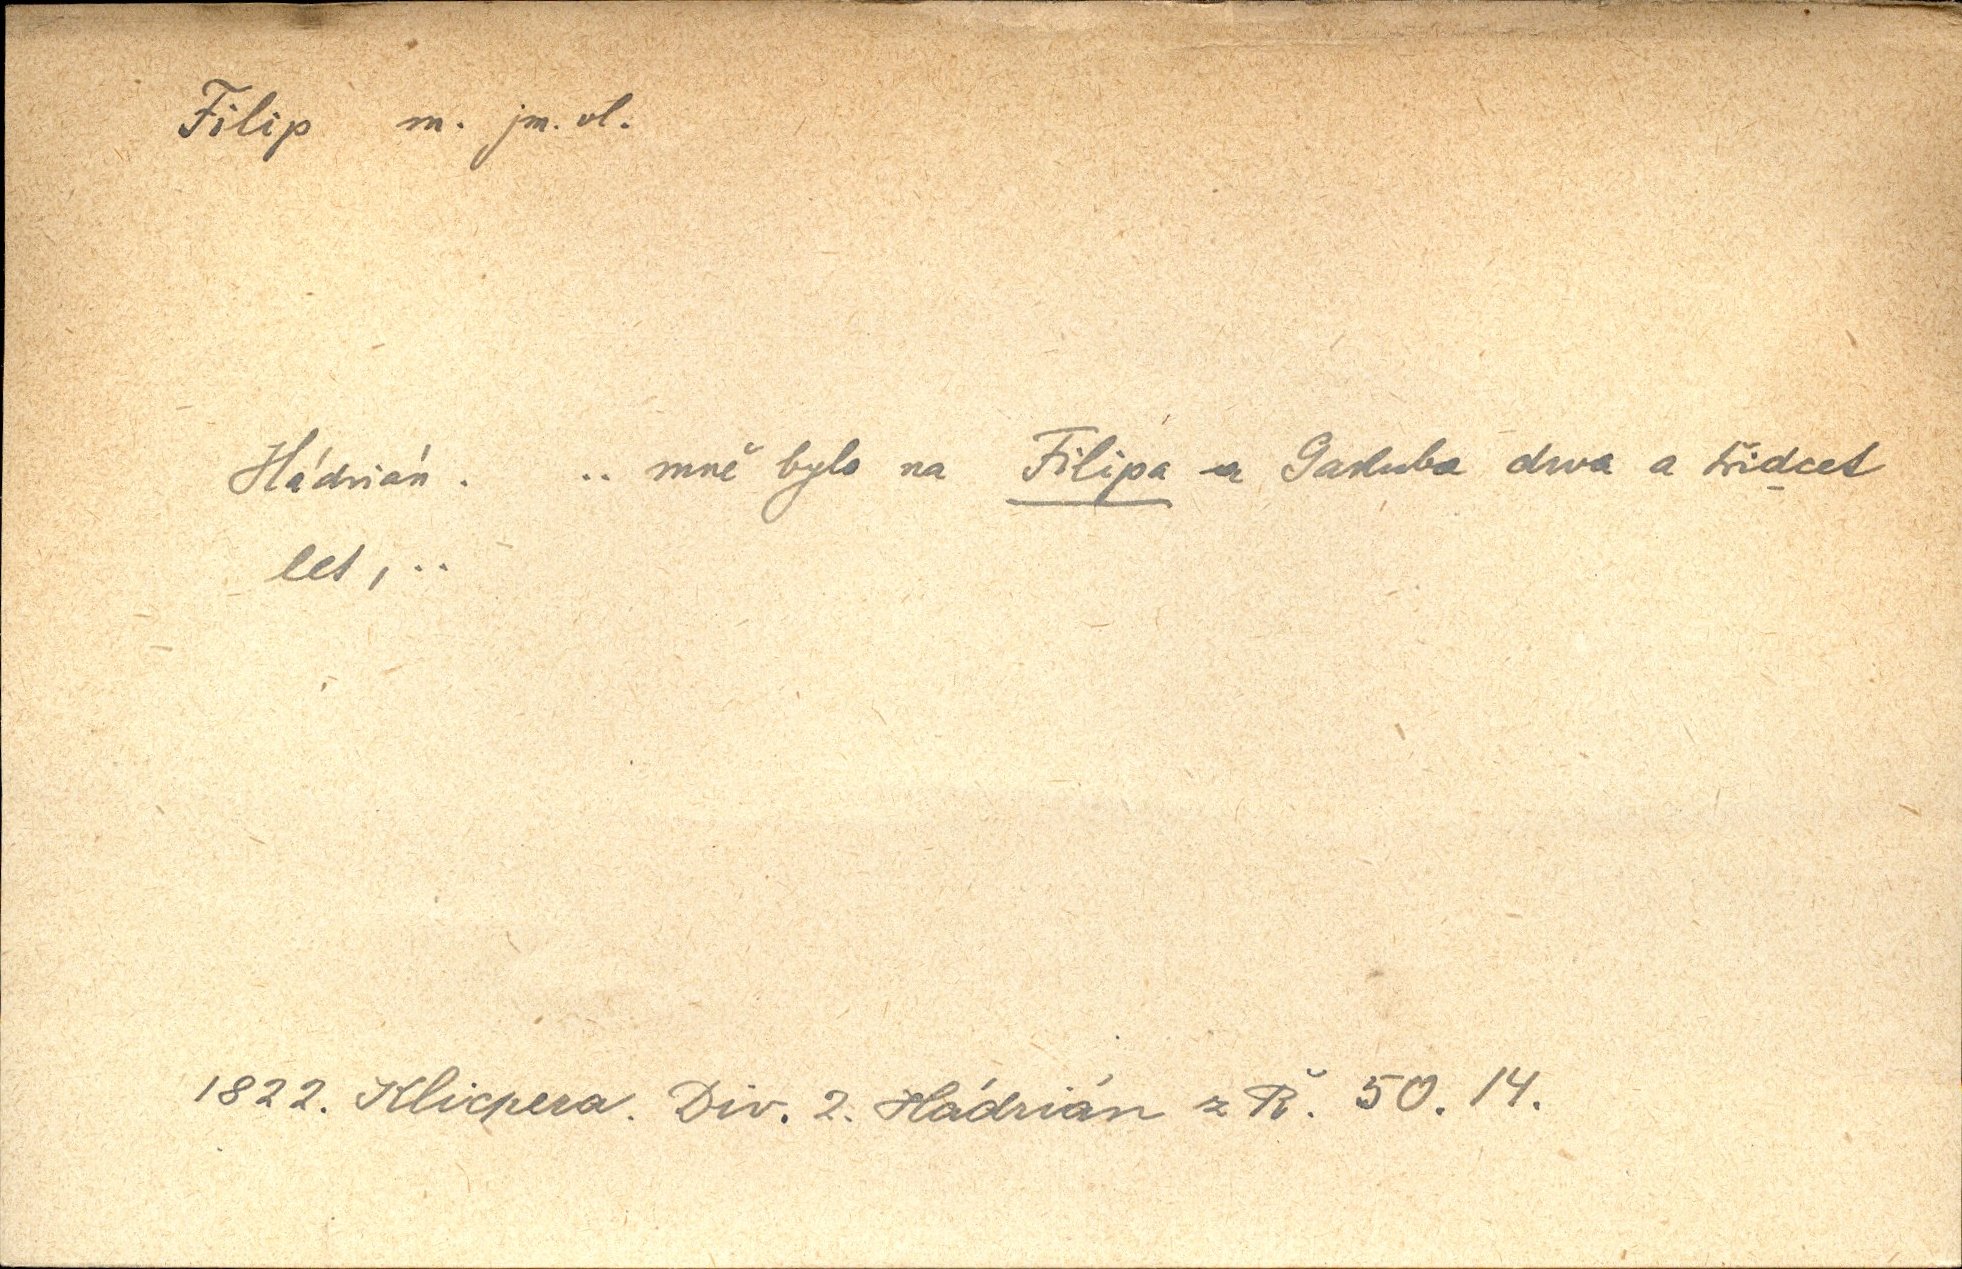 Filip m. jm. vl.
Hádrián. .. mně bylo na Filipa a Gakuba dwa a třidcet
let, ..
1822. Klicpera. Div. 2. Hádrián z Ř. 50. 14.